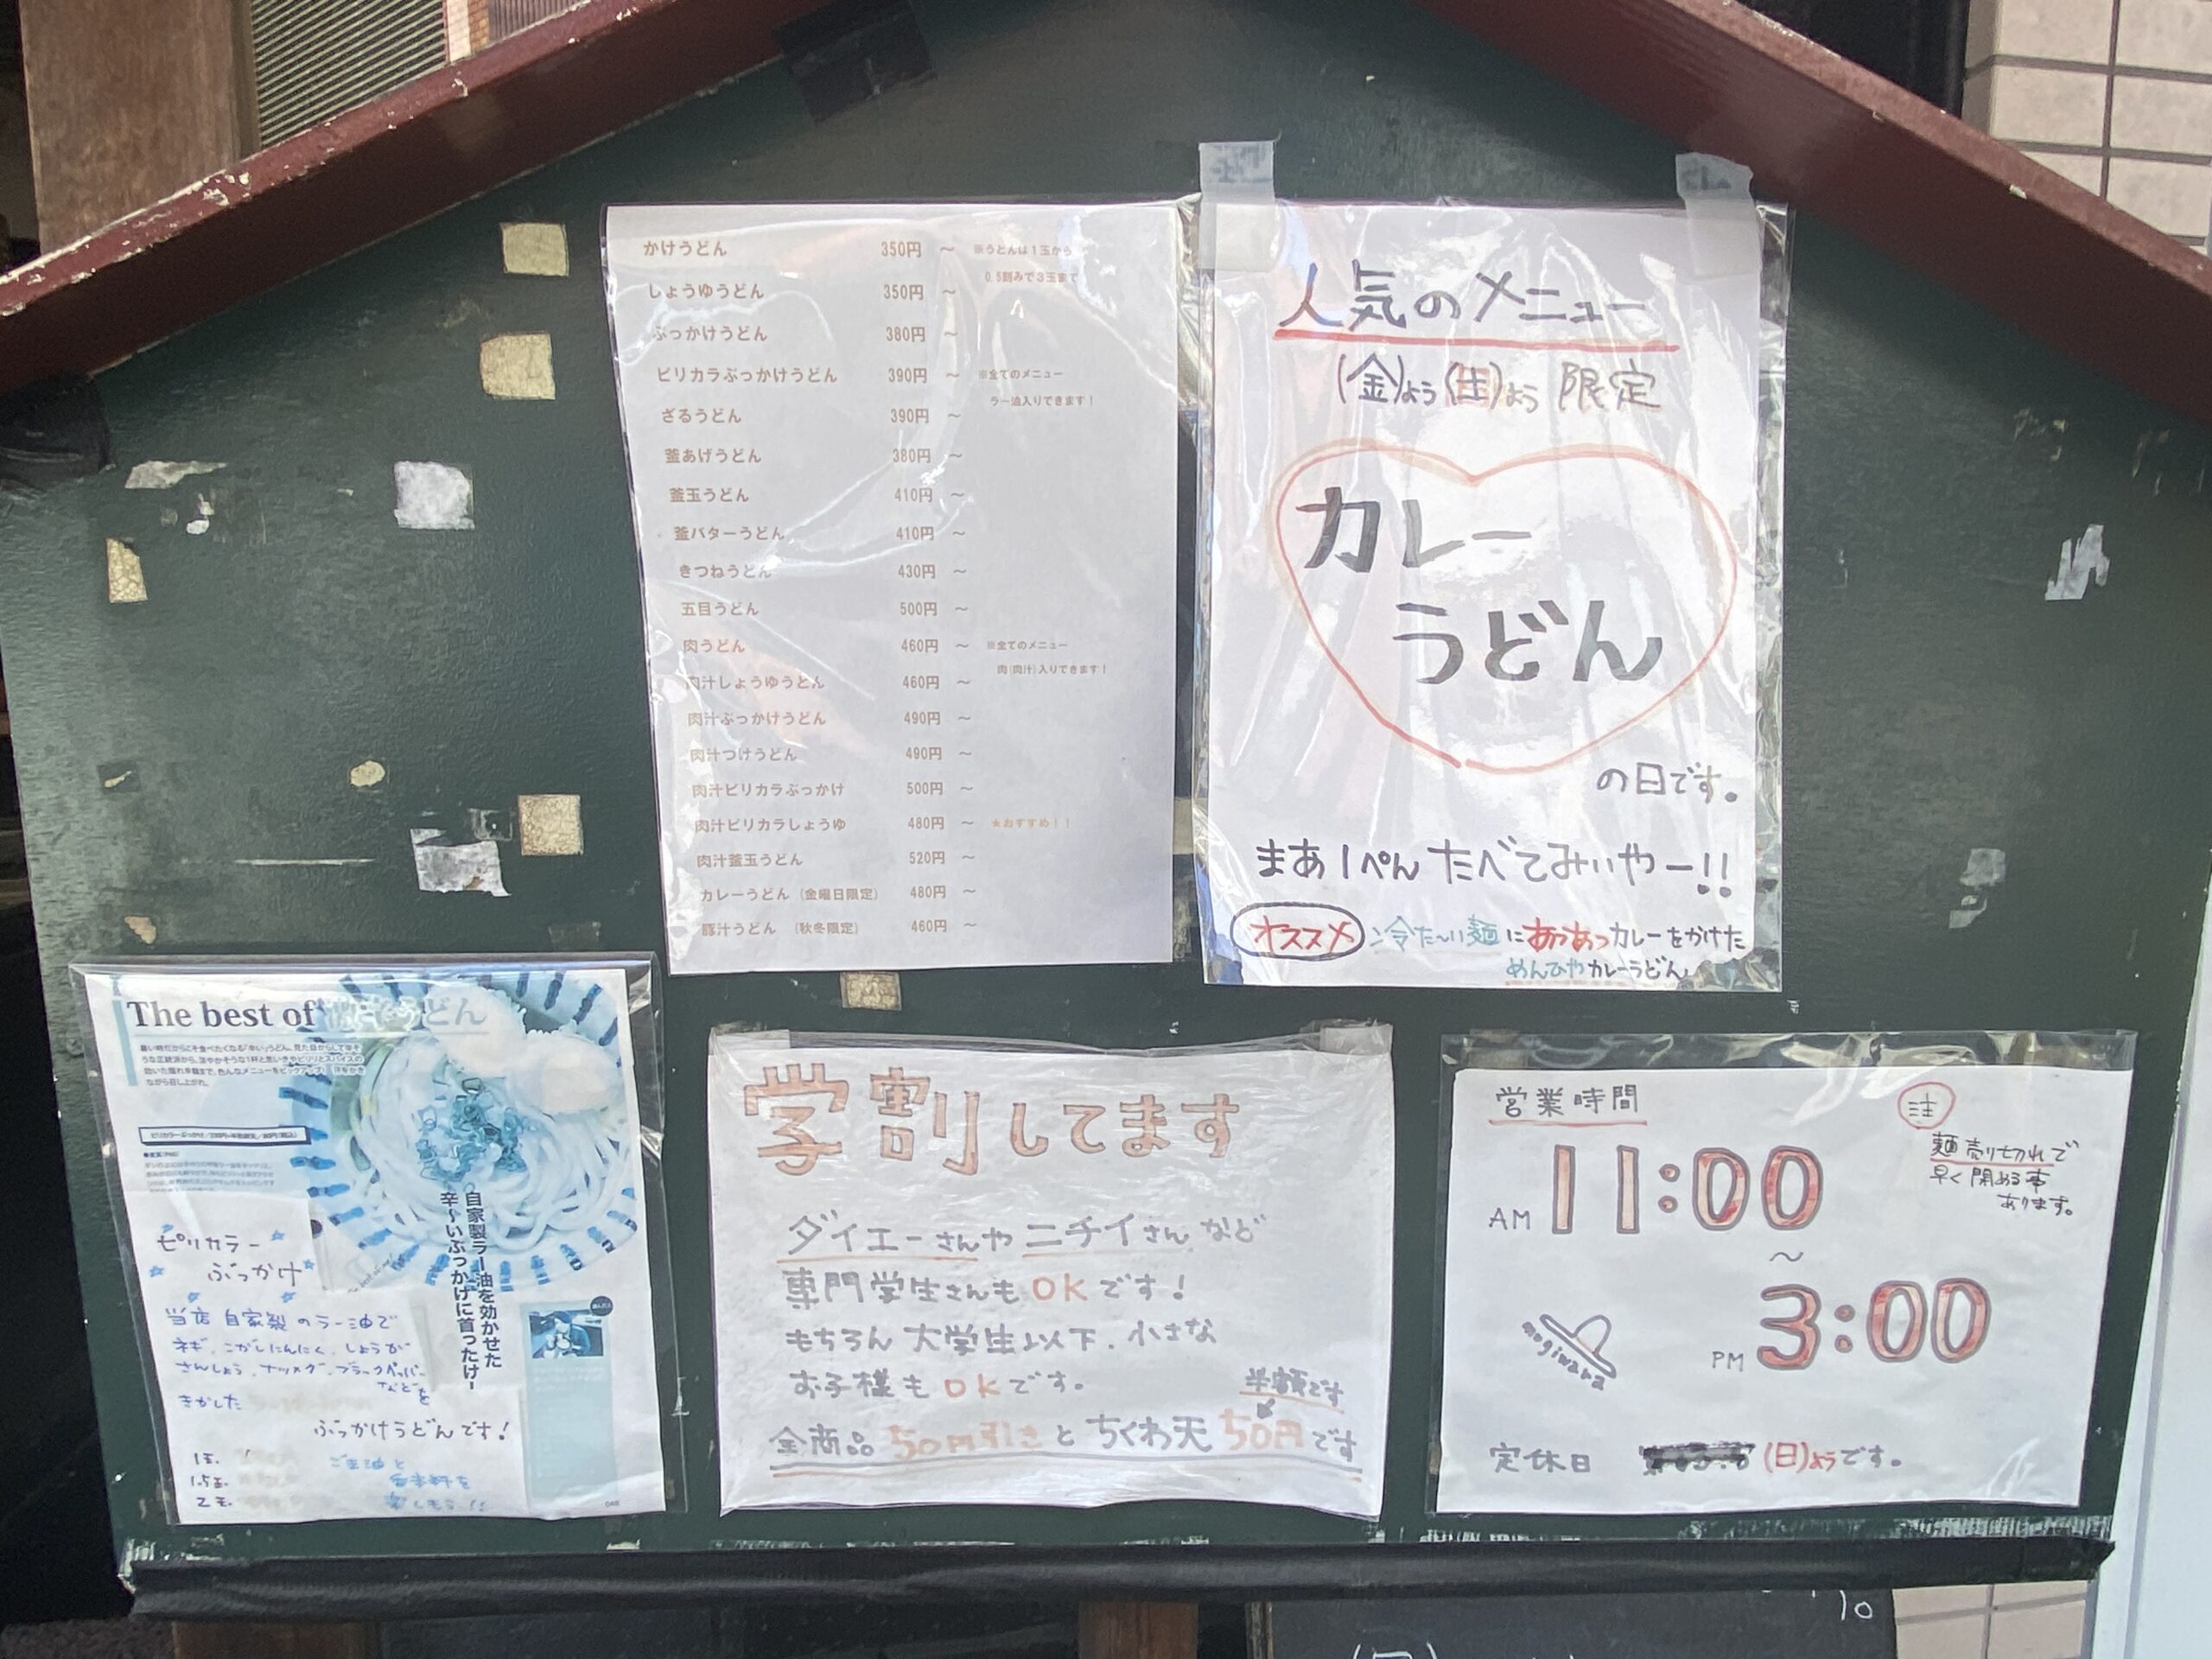 かけうどん 350円 ~ ※うどんは1玉から
0.5刻みで3玉まで
しょうゆうどん 350円 ~
ぶっかけうどん 380円 ~
ピリカラぶっかけうどん 390円 ~ ※全てのメニュー
ラー油入りできます!
ざるうどん 390円 ~
釜あげうどん 380円 ~
釜玉うどん 410円 ~
釜バターうどん 410円 ~
きつねうどん 430円 ~
五目うどん 500円 ~
肉うどん 460円 ~ ※全てのメニュー
肉(肉汁)入りできます!
肉汁しょうゆうどん 460円 ~
肉汁ぶっかけうどん 490円 ~
肉汁つけうどん 490円 ~
肉汁ピリカラぶっかけ 500円 ~
肉汁ピリカラしょうゆ 480円 ~ ★おすすめ!!
肉汁釜玉うどん 520円 ~
カレーうどん (金曜日限定) 480円 ~
豚汁うどん (秋冬限定) 460円 ~
人気のメニュー
(金)よう(土)よう 限定
カレー
うどん
の日です。
まあ1ぺん たべてみぃやー!!
オススメ 冷た~い麺にあつあつカレーをかけた
めんひやカレーうどん
The best of うどん
暑い時だからこそ食べたくなる「辛い」うどん。見た目からして辛そ
うな正統派から、
効いた隠れ辛麺まで、色んなメニューをピックアップ!
ながら召し上がれ。
自家製ラー油を効かせた
辛~いぶっかけに首ったけ~
ピリカラー
ぶっかけ
当店 自家製のラー油で
ネギ、こがしにんにく、しょうが
さんしょう、ナツメグ、ブラックペッパー
などを
きかした
ぶっかけうどんです!
1玉.
1.5玉.
2玉.
ごま油と
048
学割してます
ダイエーさんや ニチイさん など
専門学生さんも OKです!
もちろん 大学生以下、小さな
お子様も OKです。
半額です
全商品 50円引き と ちくわ天 50円です
営業時間
注
麺売り切れで
早く閉める事
あります。
AM 11:00
~
PM 3:00
mugiwara
定休日 (日)ようです。